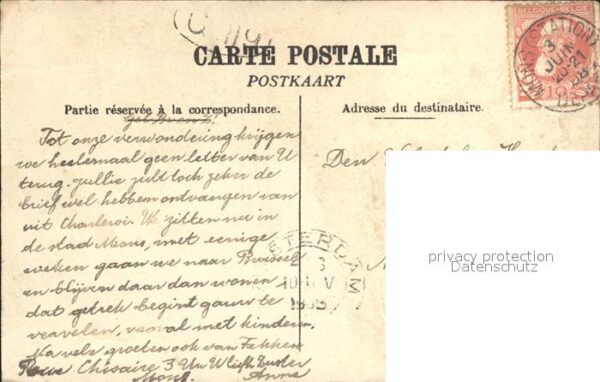 BELGIQUE-BELGIË
MONS (STATION)
3
JUIN
10
CARTE POSTALE
POSTKAART
Partie réservée à la correspondance.
Adresse du destinataire.
Tot onze verwondering krijgen
we heelemaal geen letter van U
terug. Jullie zult toch zeker de
brief wel hebben ontvangen van
uit Charleroi. We zitten nu in
de stad Mons, met eenige
weken gaan we naar Brussel
en blijven daar dan wonen
dat getrek begint gauw te
vervelen, vooral met kinderen.
Na vele groeten ook van
Uw liefh. Zuster
Mons. Anna
Den
STERDAM
privacy protection
Datenschutz